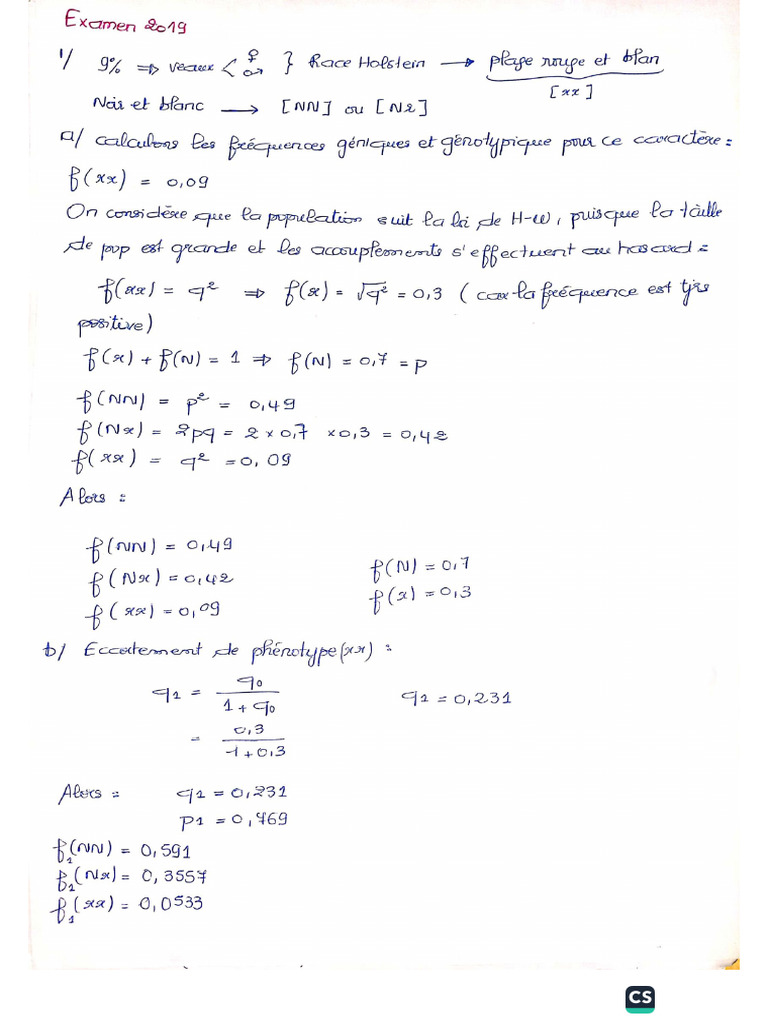 Examen 2019
1/ 9% => veaux < ♀ ♂ } Race Holstein → plage rouge et blan
[xx]
Noir et blanc → [NN] ou [Nx]
a/ calculons les fréquences géniques et génotypique pour ce caractère :
f(xx) = 0,09
On considère que la population suit la loi de H-W, puisque la taille
de pop est grande et les accouplements s'effectuent au hasard :
f(xx) = q² => f(x) = √q² = 0,3 ( car la fréquence est tjrs
positive)
f(x) + f(N) = 1 => f(N) = 0,7 = p
f(NN) = p² = 0,49
f(Nx) = 2pq = 2 × 0,7 × 0,3 = 0,42
f(xx) = q² = 0,09
Alors :
f(NN) = 0,49
f(Nx) = 0,42
f(xx) = 0,09
f(N) = 0,7
f(x) = 0,3
b/ Eccartement de phénotype(xx) :
q1 = q0 / 1 + q0
q1 = 0,231
= 0,3 / 1 + 0,3
Alors : q1 = 0,231
p1 = 0,769
f1(NN) = 0,591
f1(Nx) = 0,3557
f1(xx) = 0,0533
CS